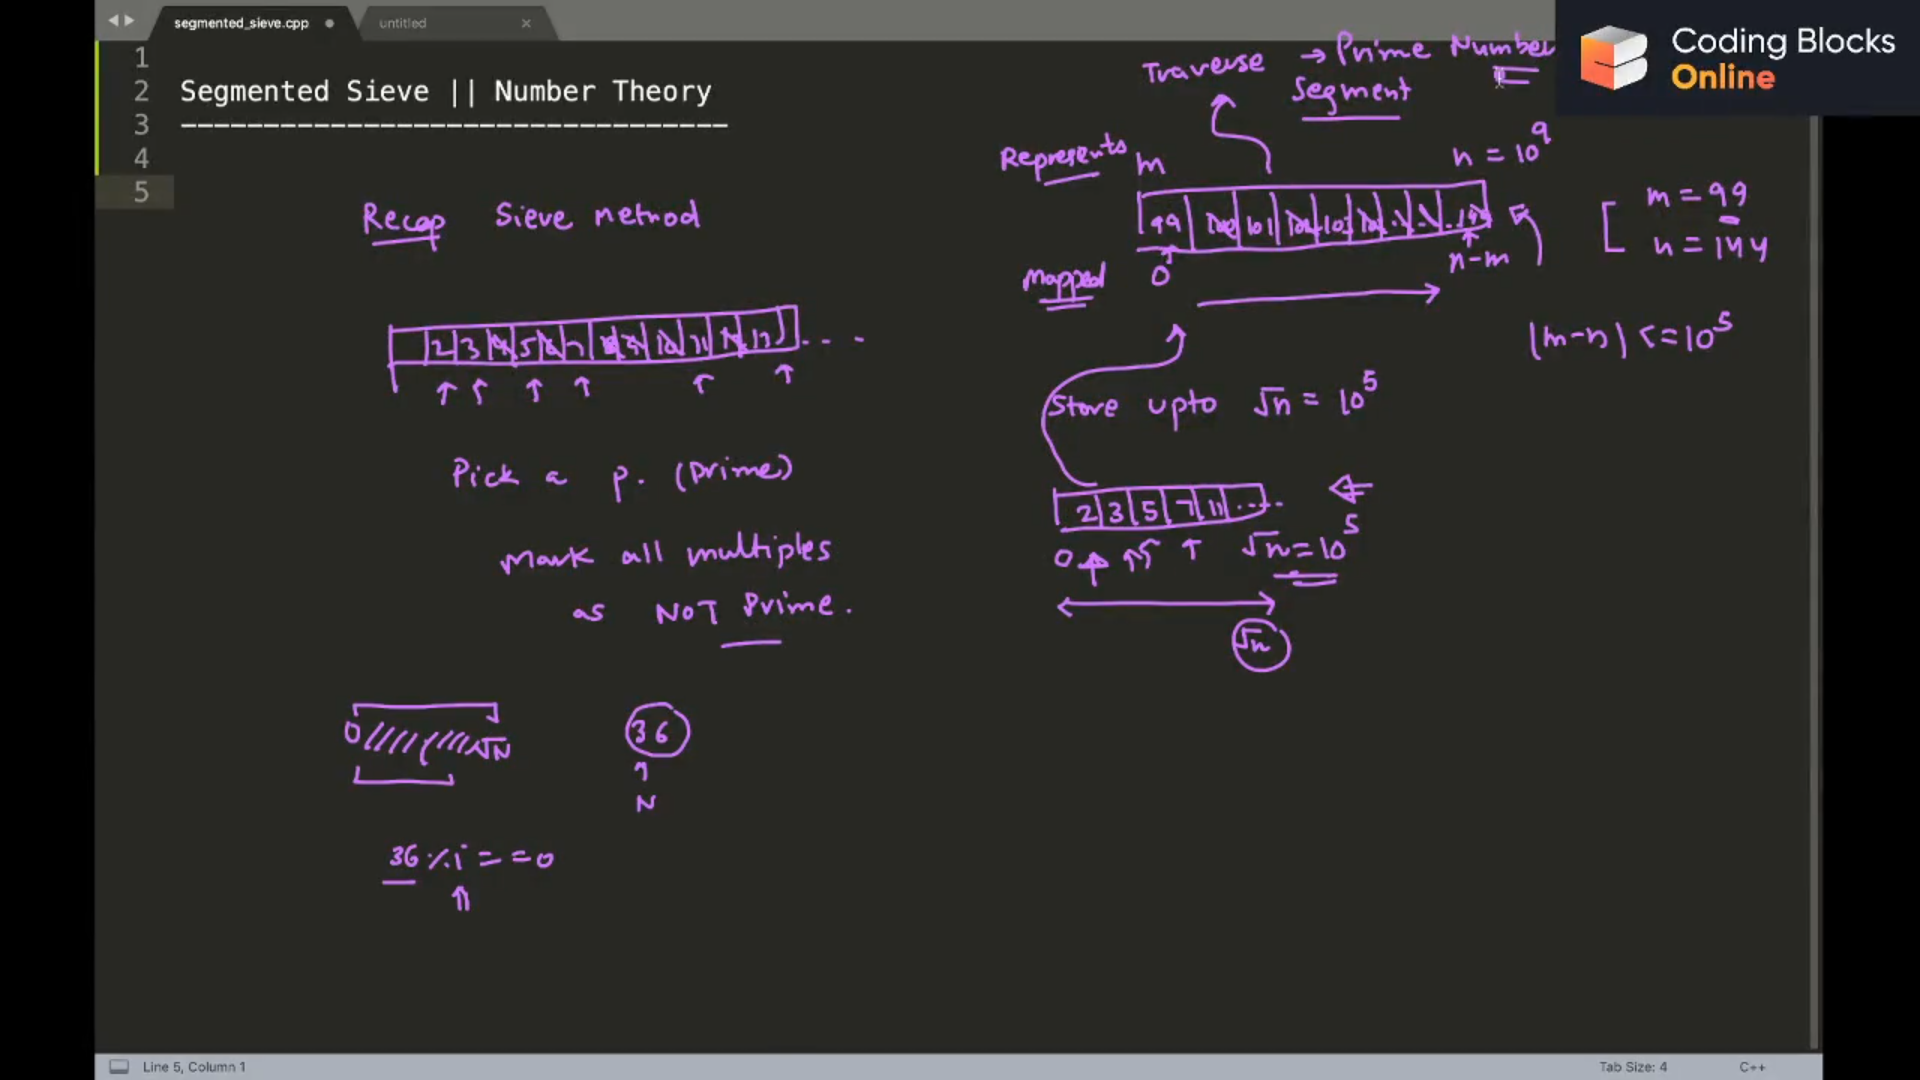 segmented_sieve.cpp
untitled
Coding Blocks
Online
1
2 Segmented Sieve || Number Theory
3 ---------------------------------
4
5
Recap Sieve method
2 3 4 5 6 7 8 9 10 11 12 13 . . .
Pick a p. (Prime)
Mark all multiples
as NOT Prime.
0 √N
36
N
36 % i == 0
Traverse → Prime Number
Segment
Represents m
n = 10^9
99 100 101 102 103
Mapped 0 n-m
m = 99
n = 144
|m-n| <= 10^5
Store upto √n = 10^5
2 3 5 7 11 ....
0 √n = 10^5
√n
Line 5, Column 1
Tab Size: 4
C++